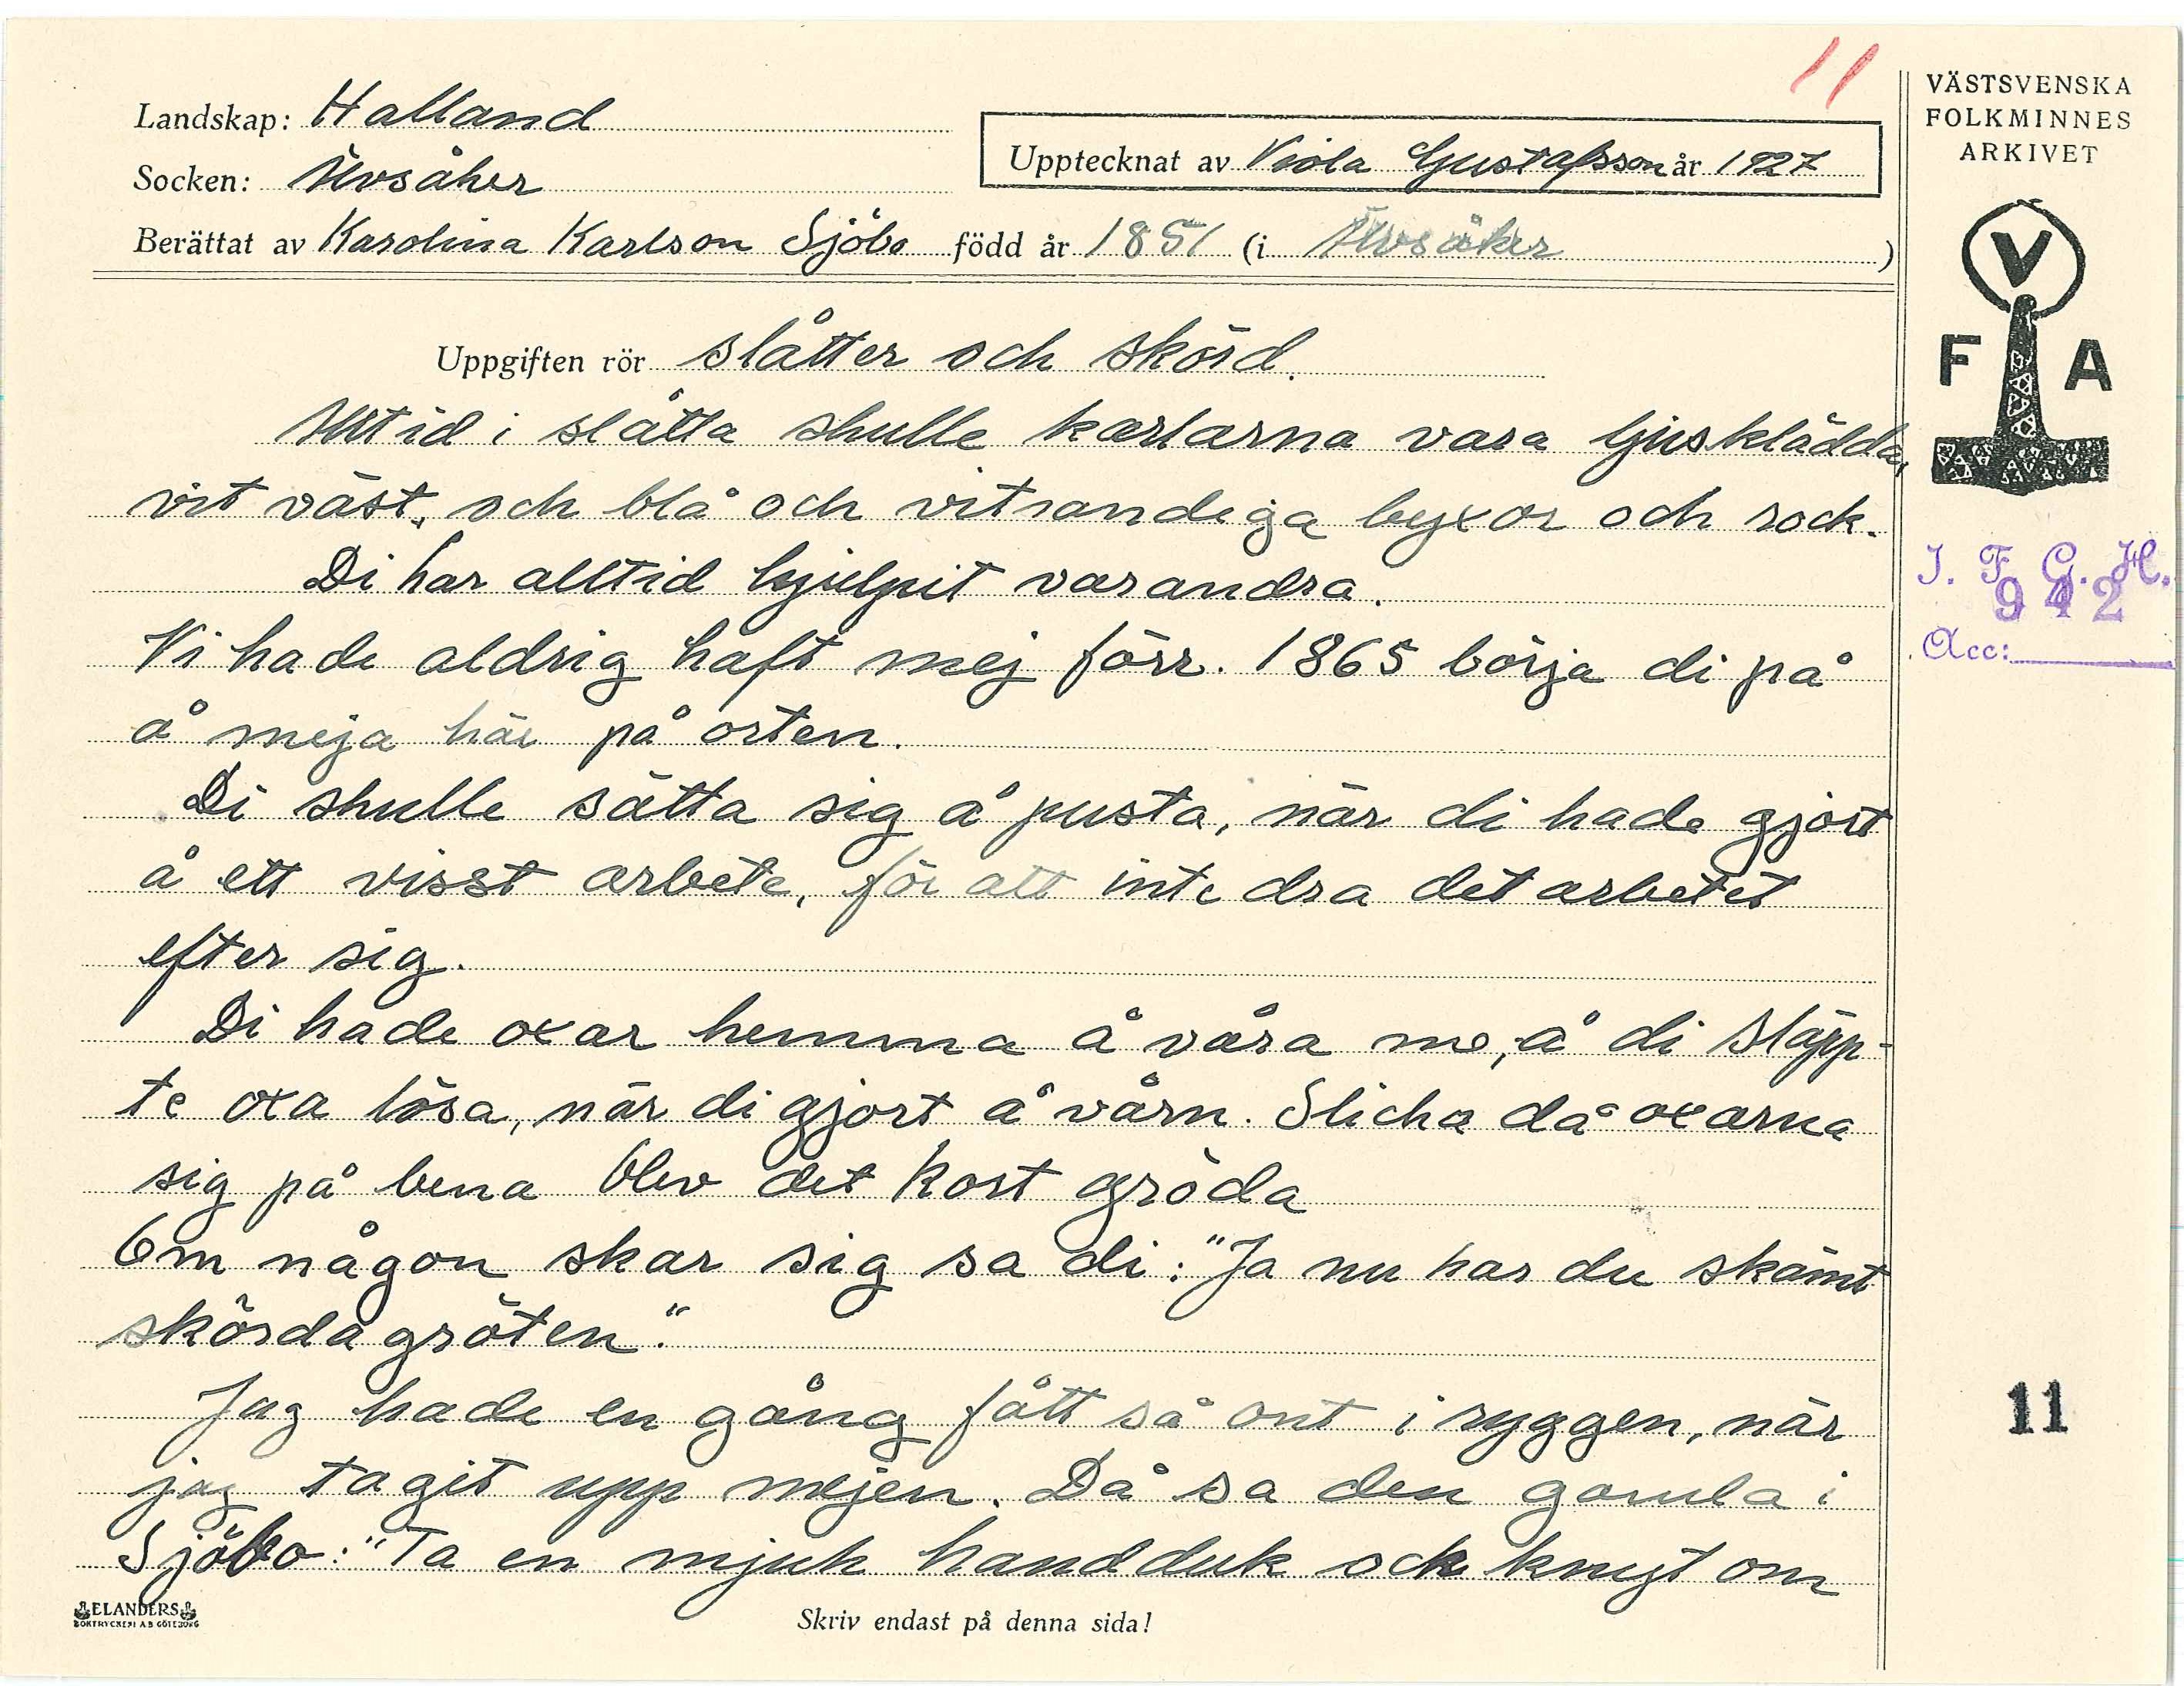 11
Landskap: Halland
Socken: Älvsåker
Upptecknat av Viola Gustafsson år 1927
Berättat av Karolina Karlson Sjöbo född år 1851 (i Älvsåker)
Uppgiften rör slåtter och skörd.
Alltid i slåtta skulle karlarna vara ljusklädda,
vit väst, och blå och vitrandiga byxor och rock.
Di har alltid hjülpit varandra.
Vi hade aldrig haft mej förr. 1865 börja di på
å meja här på orten.
Di skulle sätta sig å pusta, när di hade gjort
å ett visst arbete, för att inte dra det arbetet
efter sig.
Di hade oxar hemma å våra me, å di släpp-
te oxa lösa, när di gjort å vårn. Slicka då oxarna
sig på bena blev det kort gröda
Om någon skar sig sa di: "Ja nu har du skämt
skördagröten."
Jag hade en gång fått så ont i ryggen, när
jag tagit upp mejen. Då sa den gamla i
Sjöbo: "Ta en mjuk handduk och knyt om
ELANDERS
BOKTRYCKERI A B GÖTEBORG
Skriv endast på denna sida!
VÄSTSVENSKA
FOLKMINNES
ARKIVET
V
F A
I. F. G. H.
942
Acc:
11